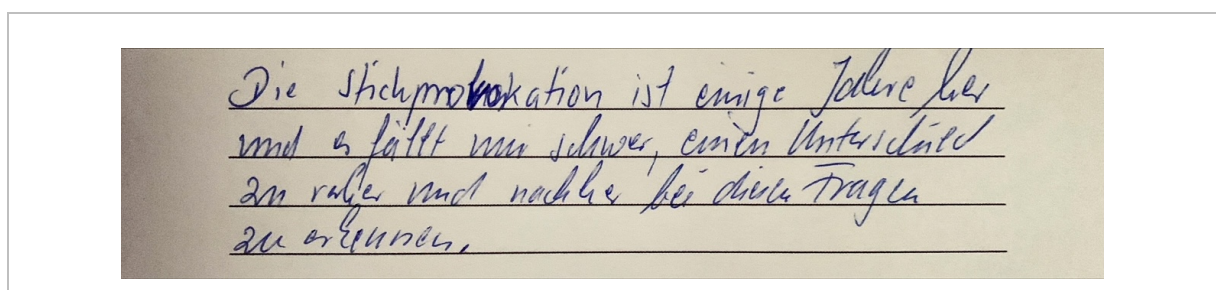 Die Stichprovokation ist einige Jahre her
und es fällt mir schwer, einen Unterschied
zu vorher und nachher bei diesen Fragen
zu erkennen.